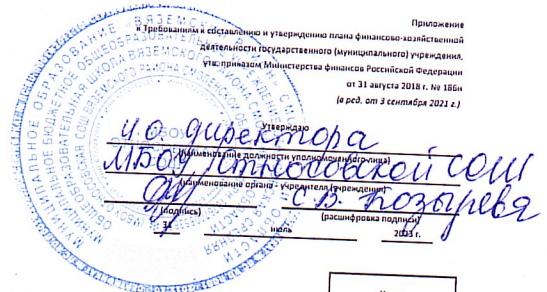 Приложение
к Требованиям к составлению и утверждению плана финансово-хозяйственной
деятельности государственного (муниципального) учреждения,
утв. приказом Министерства финансов Российской Федерации
от 31 августа 2018 г. № 186н
(в ред. от 3 сентября 2021 г.)
Утверждаю
и.о. директора
(наименование должности уполномоченного лица)
МБОУ СОШ
(наименование органа - учредителя (учреждения)
С.В. Козырева
(подпись) (расшифровка подписи)
31 июль 2023 г.